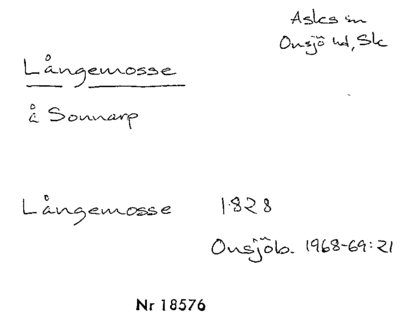 Asks sn
Onsjö hd, Sk
Långemosse
å Sonnarp
Långemosse 1828
Onsjöb. 1968-69:21
Nr 18576